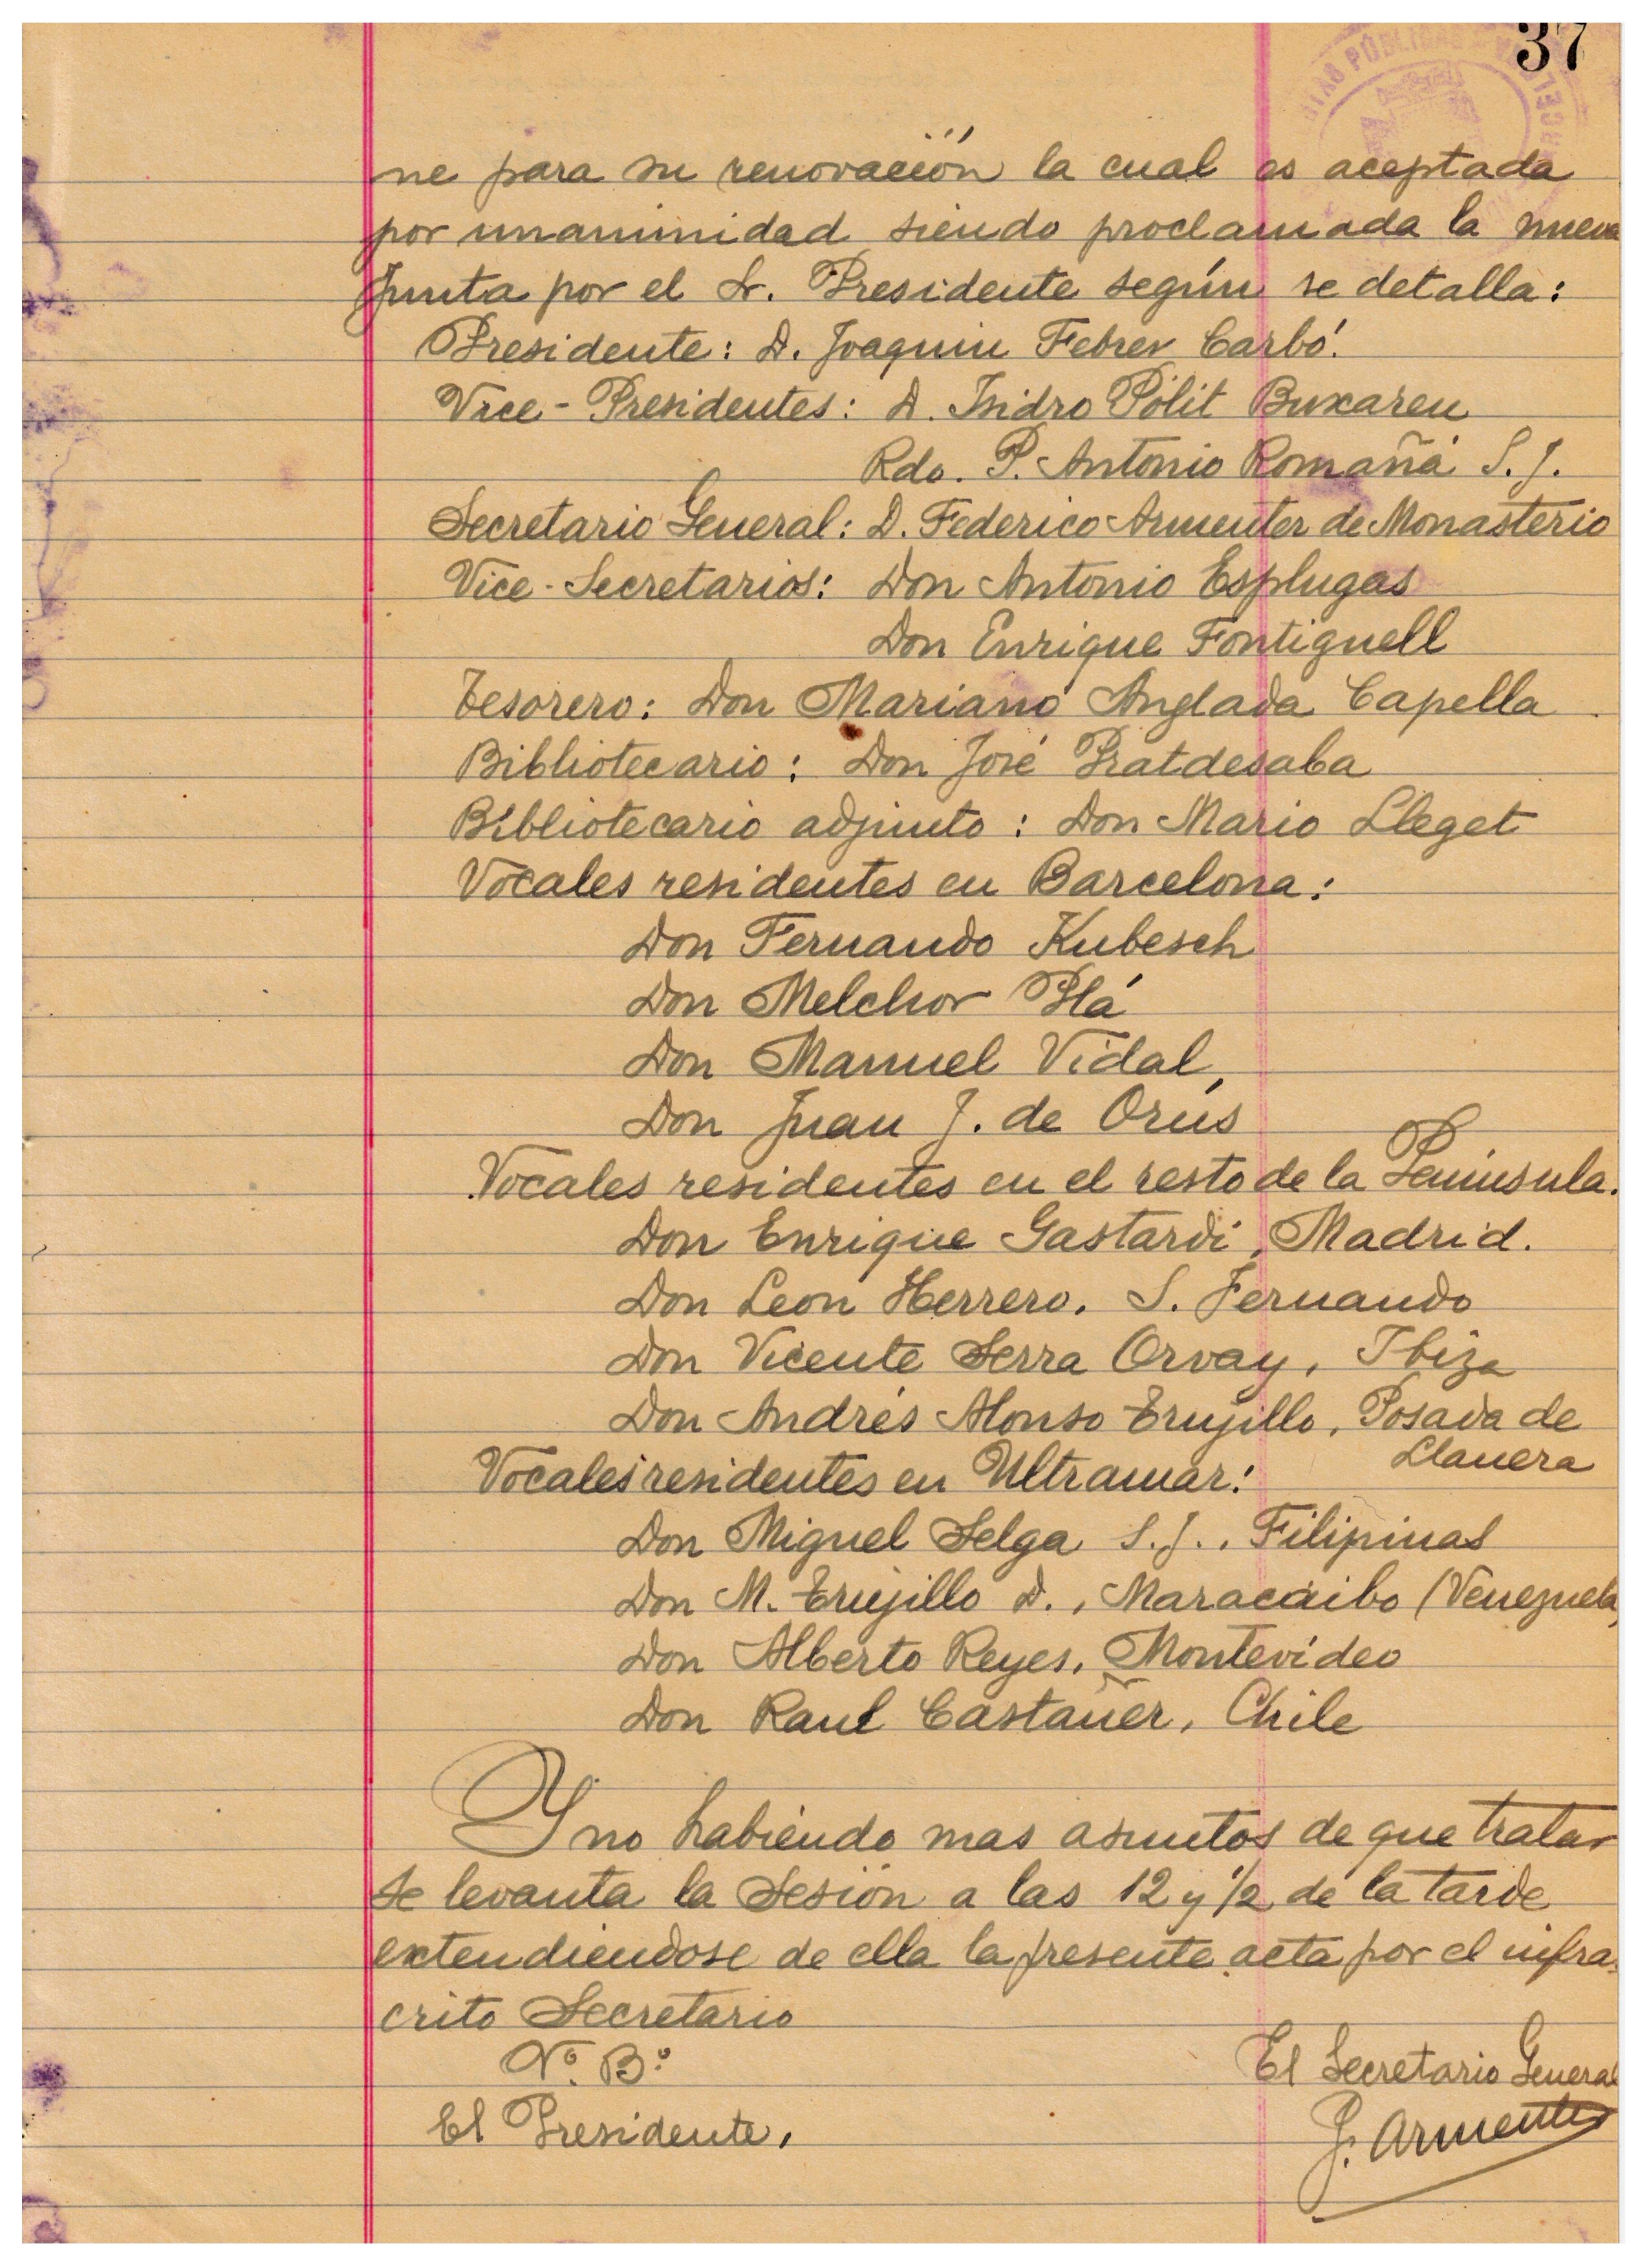 37
ne para su renovación la cual es aceptada
por unanimidad siendo proclamada la nueva
Junta por el Sr. Presidente según se detalla:
Presidente: D. Joaquin Febrer Carbó.
Vice-Presidentes: D. Isidro Pólit Buxareu
Rdo. P. Antonio Romañá S. J.
Secretario General: D. Federico Armenter de Monasterio
Vice-Secretarios: Don Antonio Esplugas
Don Enrique Fontiguell
Tesorero: Don Mariano Anglada Capella
Bibliotecario: Don José Pratdesaba
Bibliotecario adjunto: Don Mario Lleget
Vocales residentes en Barcelona:
Don Fernando Kubesch
Don Melchor Plá
Don Manuel Vidal
Don Juan J. de Orús
Vocales residentes en el resto de la Península.
Don Enrique Gastardi, Madrid.
Don Leon Herrero. S. Fernando
Don Vicente Serra Orvay, Ibiza
Don Andrés Alonso Trujillo, Posada de
Llanera
Vocales residentes en Ultramar:
Don Miguel Selga S.J., Filipinas
Don M. Trujillo D., Maracaibo (Venezuela)
Don Alberto Reyes, Montevideo
Don Raul Castañer, Chile
Y no habiendo mas asuntos de que tratar
se levanta la Sesión a las 12 y 1/2 de la tarde
extendiendose de ella la presente acta por el infra-
crito Secretario
Vº. Bº.
El Secretario General
El Presidente,
F. Armenter